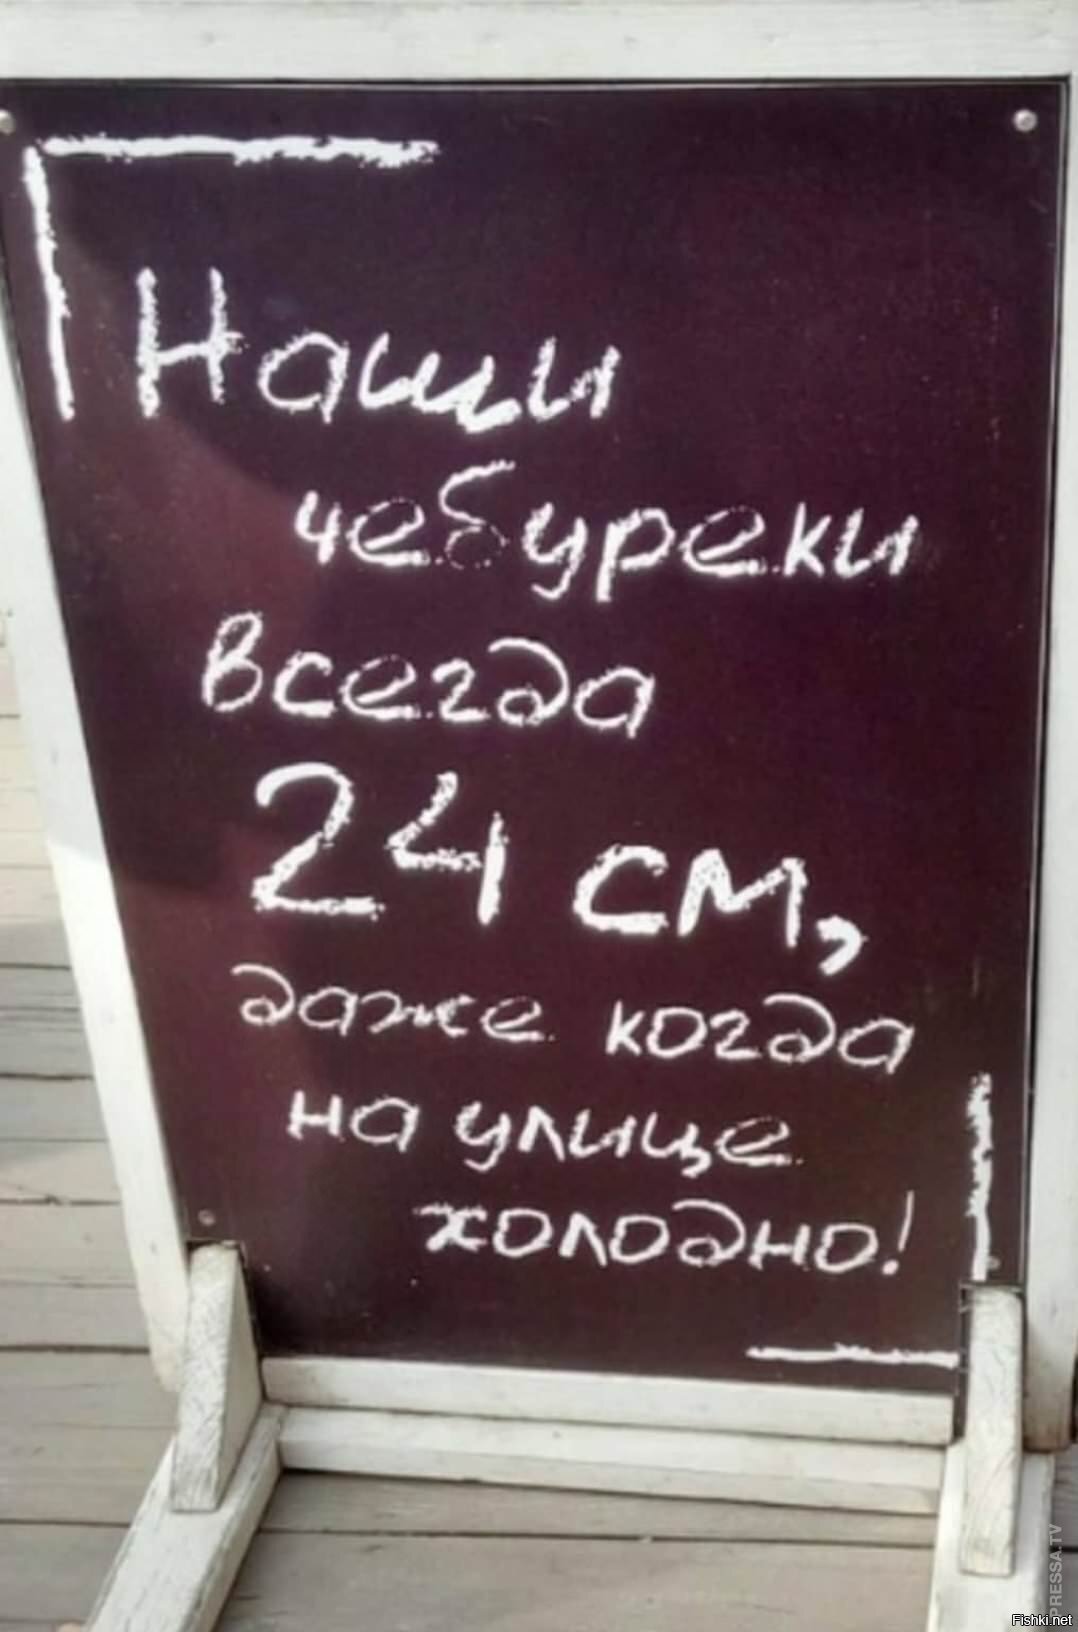 Наши
чебуреки
всегда
24 см,
даже когда
на улице
холодно!
PRESSA.TV
Fishki.net